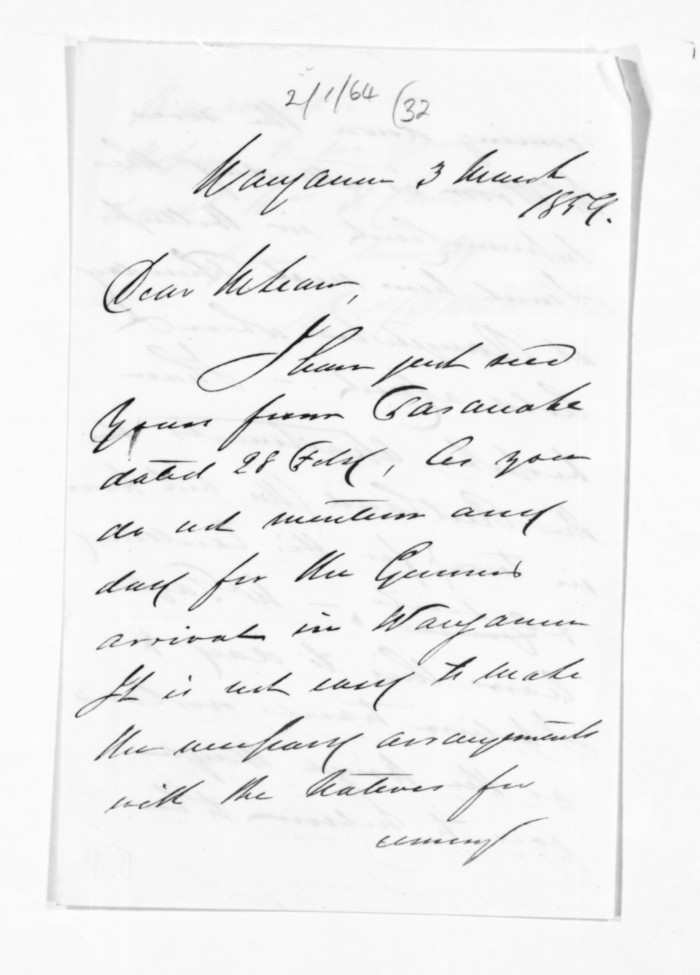 2/1/64 (32
Wanganui 3 March
1859.
Dear McLean,
I have just recd
yours from Taranaki
dated 28 Feby, As you
do not mention any
day for the Governors
arrival in Wanganui
It is not easy to make
the necessary arrangements
with the Natives for
coming